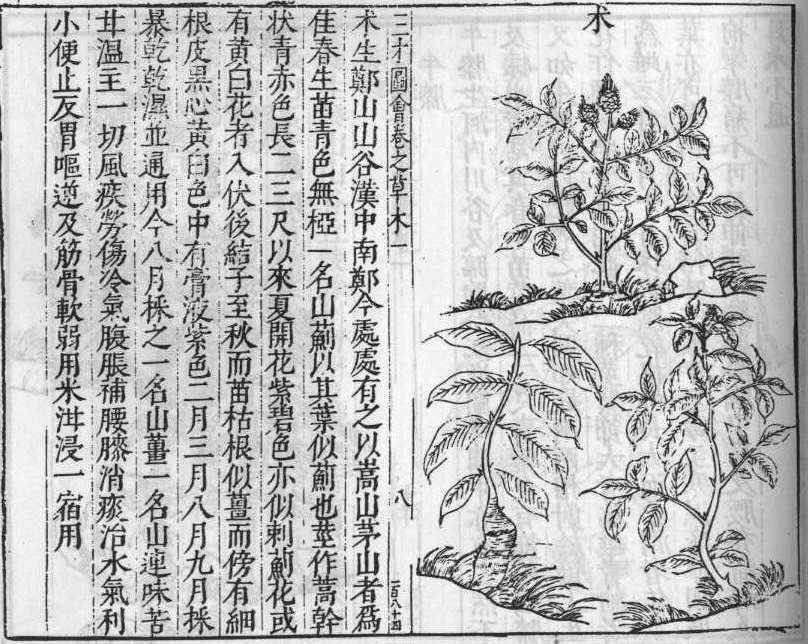 术
三才圖會卷之草木一 八 一百八十四
术生鄭山山谷漢中南鄭今處處有之以嵩山茅山者爲
佳春生苗青色無椏一名山薊以其葉似薊也莖作蒿幹
状青赤色長二三尺以來夏開花紫碧色亦似刺薊花或
有黃白花者入伏後結子至秋而苗枯根似薑而傍有細
根皮黑心黃白色中有膏液紫色二月三月八月九月採
暴乾乾濕並通用今八月採之一名山薑一名山連味苦
甘温主一切風疾勞傷冷氣腹脹補腰膝消痰治水氣利
小便止反胃嘔逆及筋骨軟弱用米泔浸一宿用